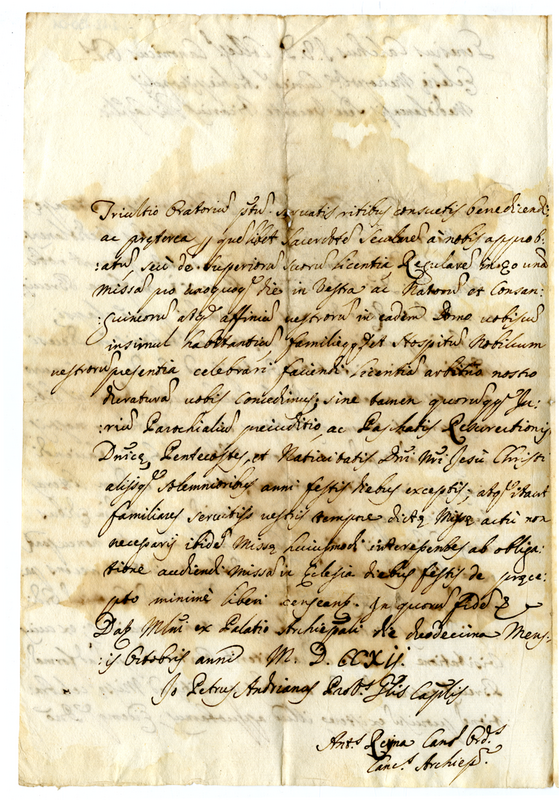 Triultio Oratoriũ p̃tũ servatis ritibus consuetis benedicendi
ac pręterea p quemlibet Sacerdotẽ Secularẽ à nobis approb:
:atũ, seu de superiorũ suorũ licentia Regularẽ in eo unã
missã uno quoq; die in vestra ac Natorũ et Consan:
:guineorũ atq; affiniũ vestrorũ in eadem Domo vobiscũ
insimul habitantiũ, familięq; et Hospitũ Nobilium
vestrorũ presentia celebrari faciendi licentiã arbitrio nostro
duraturã vobis concedimus, sine tamen quorumq; Ju:
:riũ Parochialiũ preiuditio, ac Paschatis Resurrectionis
Dnicę, Pentecostes, et Nativitatis Dni Nri Jesu Christi
alijsq; solemnioribus anni festis diebus exceptis; atq; itaut
familiares servitijs vestris tempore dictę Missę actu non
necessarij ibidẽ Missę huiusmodi interessentes ab obliga:
:tione audiendi missã in Eclesia diebus festis de pręce:
:pto minimè liberi censeant. In quorũ fidẽ &
Dat Mlni ex Palatio Archiepali die duodecima Mens:
:is Octobris anni M. D. CCXII.
Jo Petrus Andrianus
Ant.s Reina Canc.s Ord.s
Canc.s Archiep.